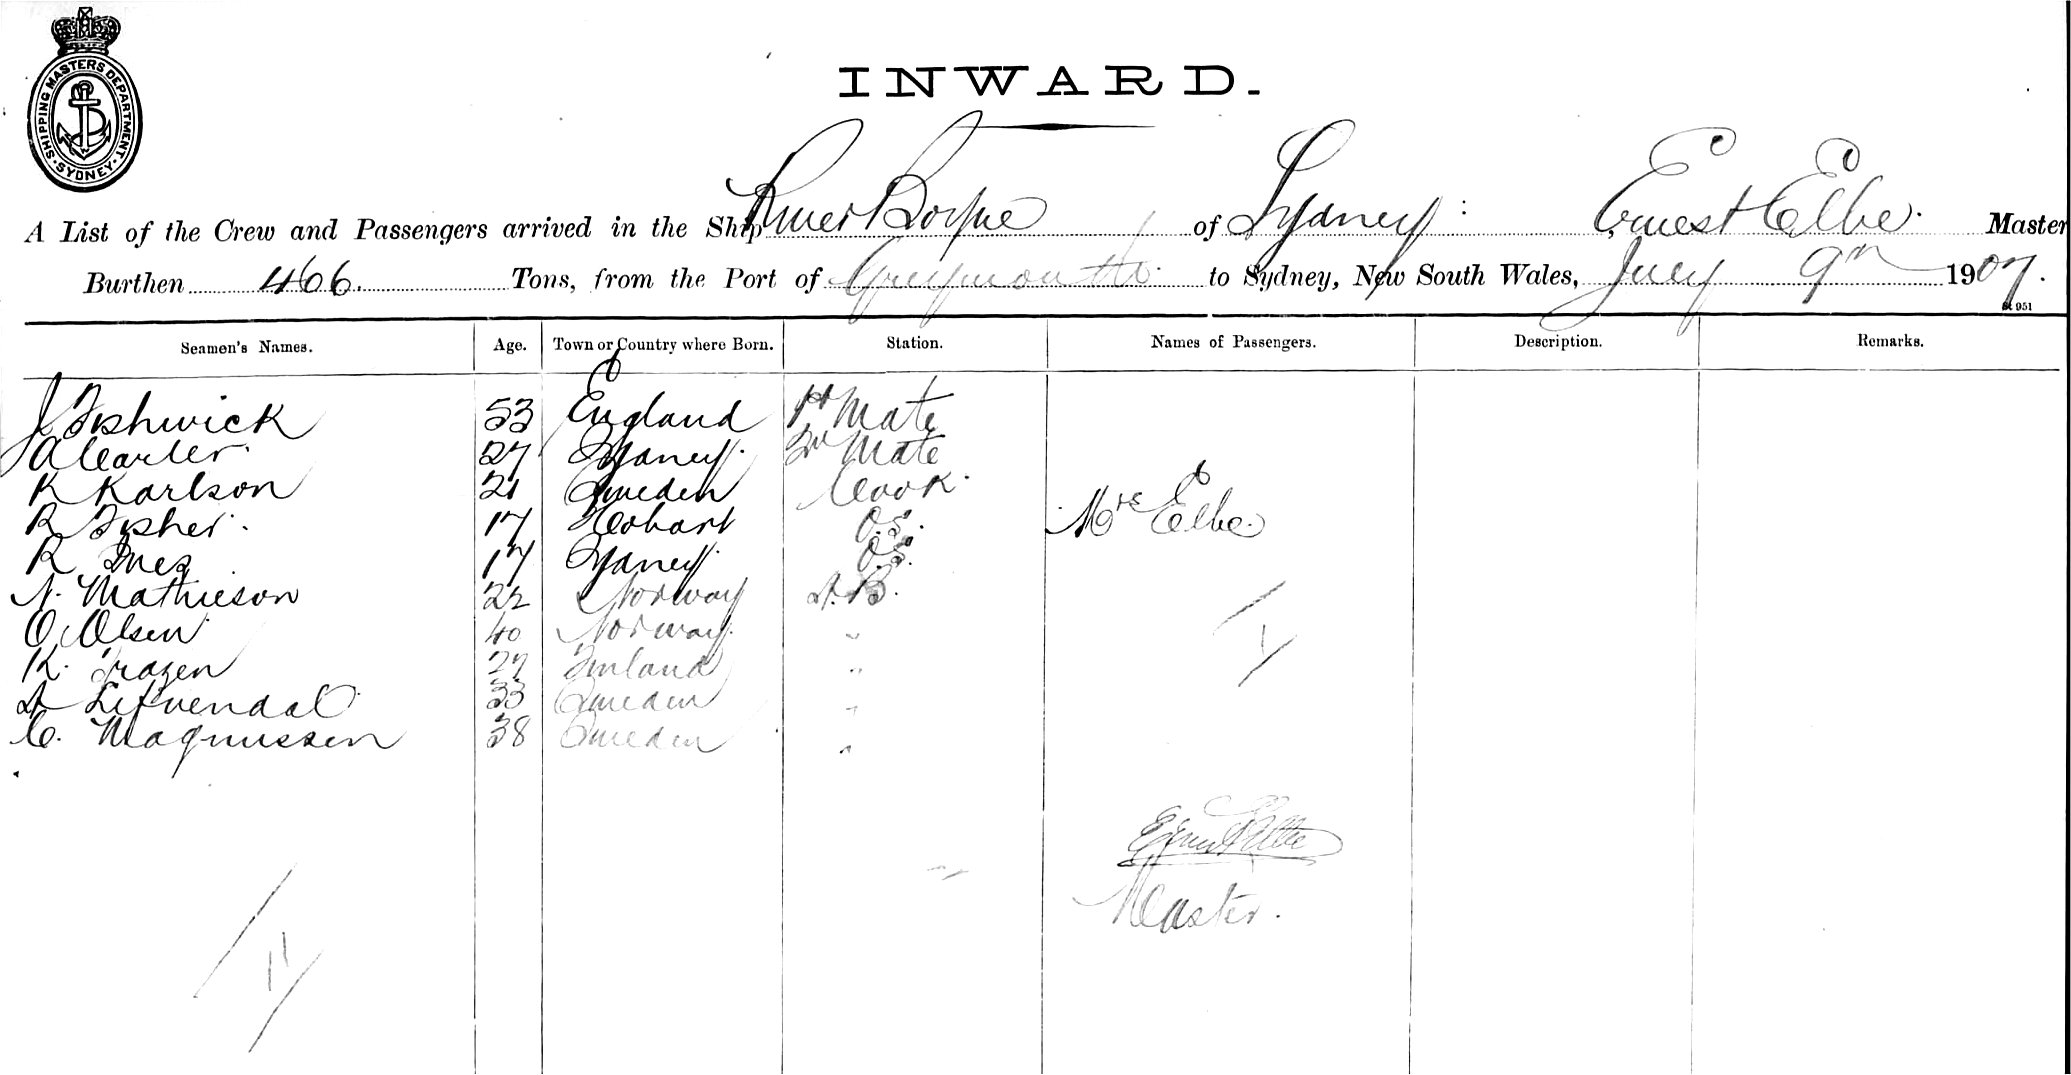 SHIPPING MASTERS DEPARTMENT · SYDNEY ·
INWARD.
A List of the Crew and Passengers arrived in the Ship River Boyne of Sydney: Ernest Elbe. Master
Burthen 466. Tons, from the Port of Greymouth. to Sydney, New South Wales, July 9th 1907.
St 951
Seamen's Names. Age. Town or Country where Born. Station. Names of Passengers. Description. Remarks.
J Fishwick 53 England 1st Mate
A Carter. 27 Sydney. 2nd Mate
K Karlson 21 Sweden Cook.
R Fisher. 17 Hobart O.S. Mrs Elbe.
R 17 Sydney O.S.
N. Mathieson 22 Norway A.B.
O Olsen 40 Norway. "
K. Frazen 27 Finland "
A Lefvendal 33 Sweden "
C. Magnussen 38 Sweden "
1
Ernest Elbe
Master.
11